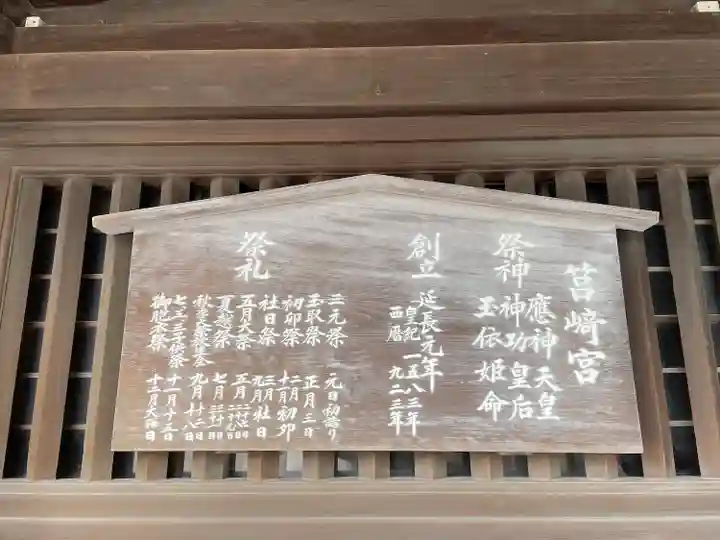 筥崎宮
祭神
應神天皇
神功皇后
玉依姫命
創立
延長元年
皇紀 一五八三年
西暦 九二三年
祭礼
三元祭 元日初詣り
玉取祭 正月三日
初卯祭 二月 十一月 初卯
社日祭 三月 九月 社日
五月大祭 五月
夏越祭 七月
九月
七五三子供祭 十一月十五日
御胞衣祭 十二月大祓日